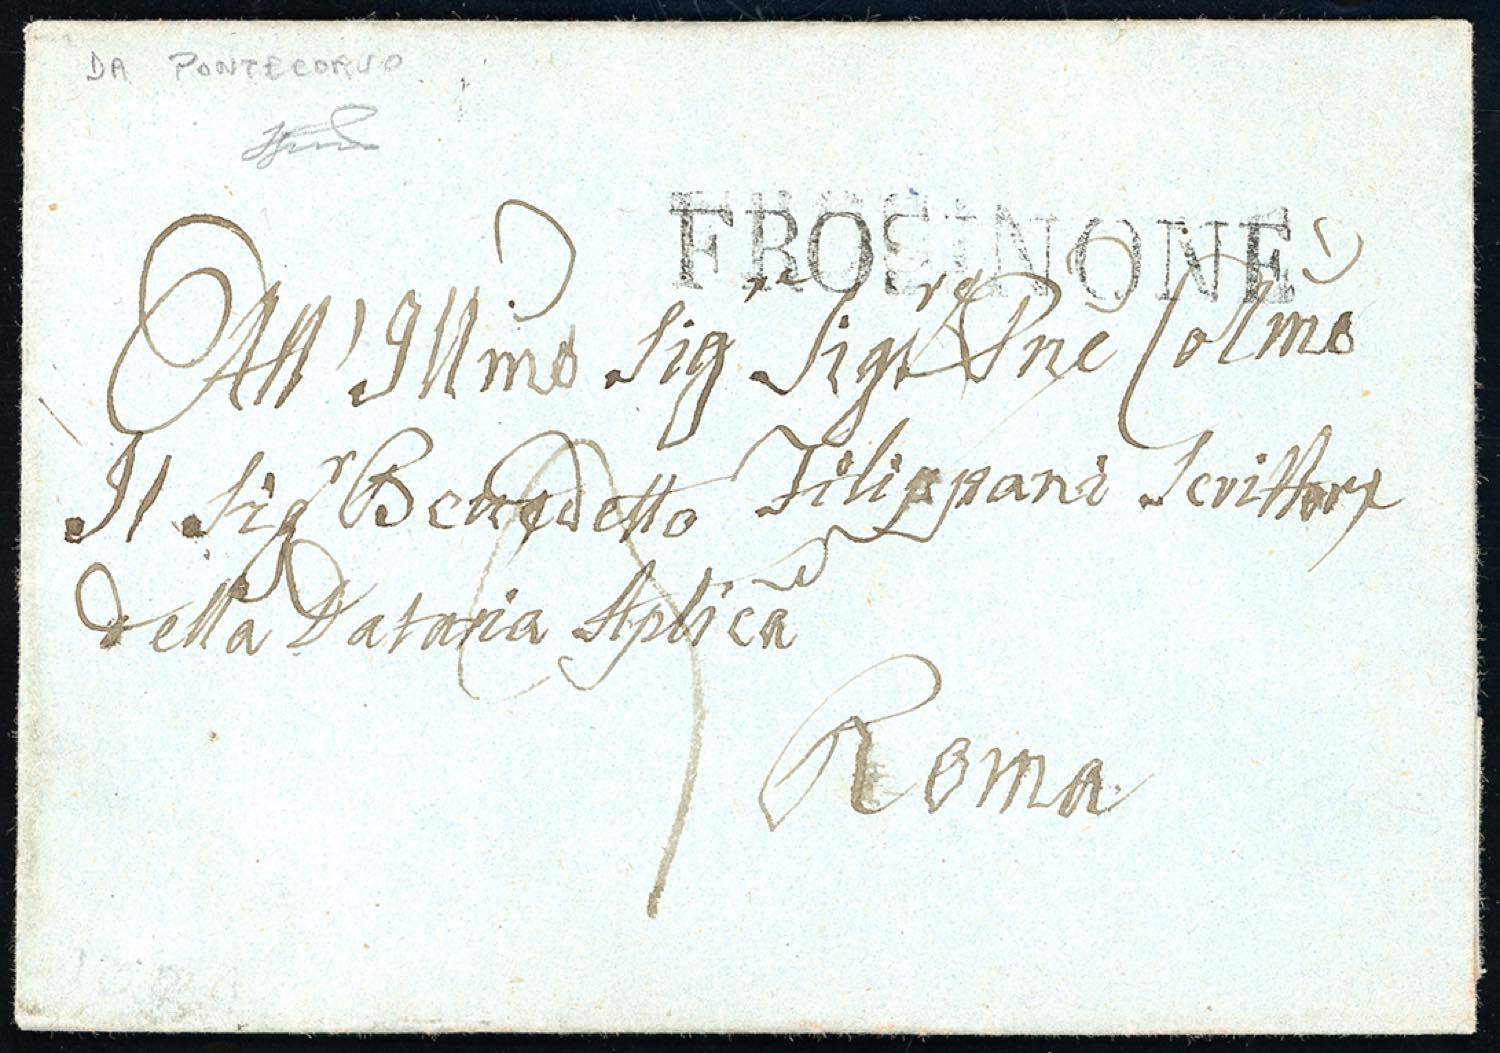 DA PONTECORVO
FROSINONE
All' Illmo Sig.re Sig.re Pne Colmo
Il Sigr Benedetto Filippani Scrittore
della Dataria Aplica
9
Roma